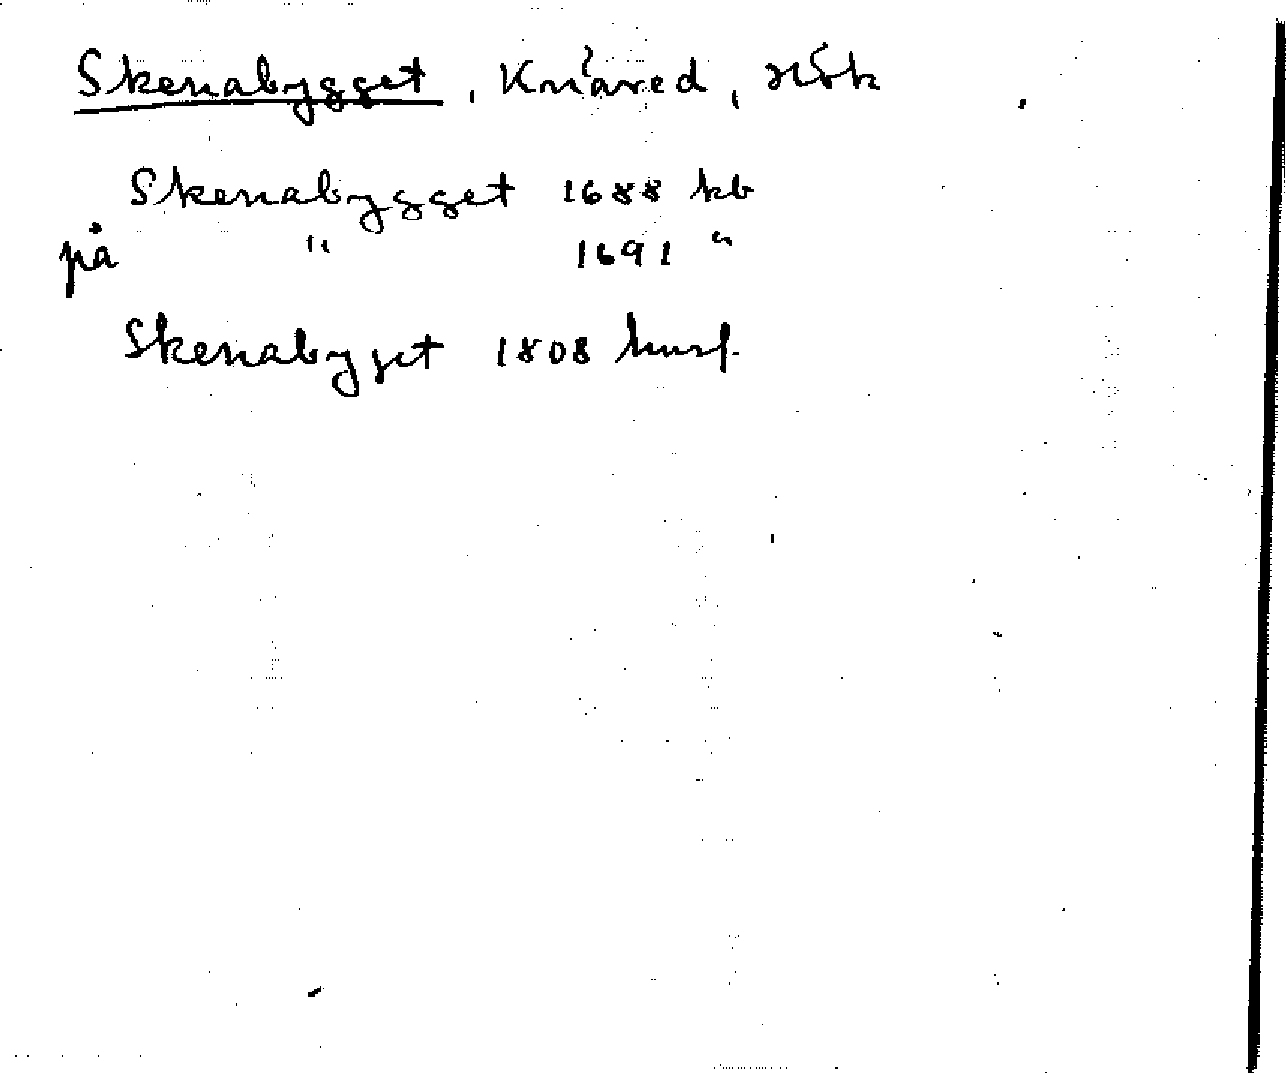 Skenabygget, Knäred, Hök
Skenabygget 1688 kb
på " 1691 "
Skenabyget 1808 husf.